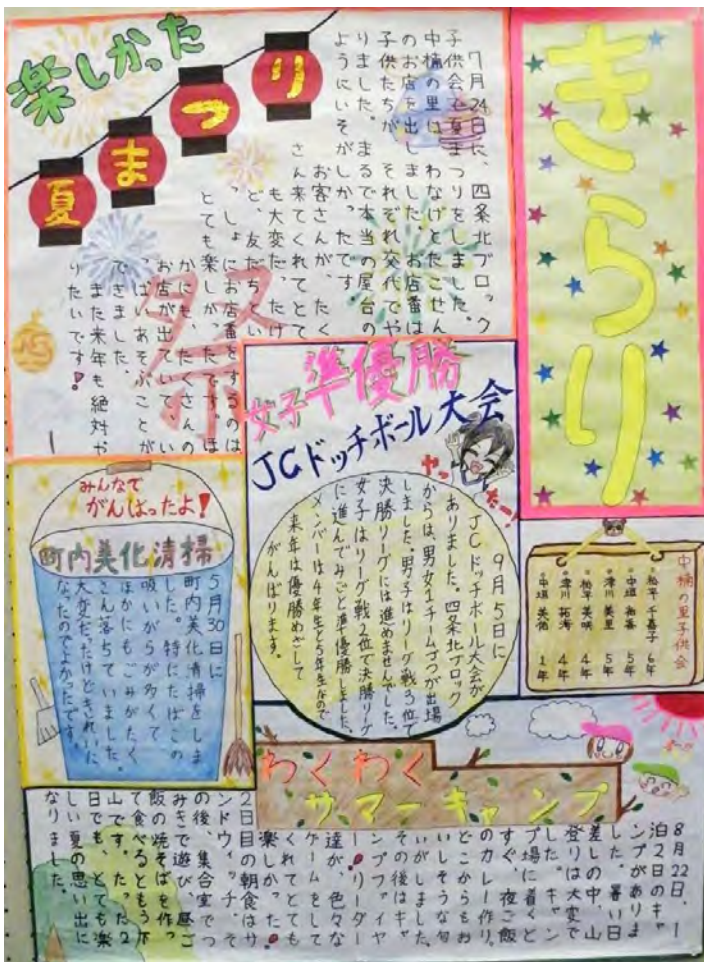 きらり
楽しかった
夏まつり
7月24日に、四条北ブロック
子供会で夏まつりをしました。
中楠の里は、わなげとたこせん
のお店を出しました。お店番は
子供たちが、それぞれ交代でや
りました。まるで本当の屋台の
ようにいそがしかったです。
お客さんが、たく
さん来てくれてとて
も大変だったけ
ど、友だちとい
っしょにお店番をするのは
とても楽しかったです。ほ
かにも、たくさんの
お店が出ていて、い
っぱいあそぶことが
できました。
また来年も絶対や
りたいです!
祭
中楠の里子供会
松平 千喜子 6年
中垣 和喜 5年
津川 美里 5年
松平 美咲 4年
津川 拓海 4年
中垣 美佑 1年
女子準優勝
JCドッチボール大会
やったー!
9月5日に
JCドッチボール大会が
ありました。四条北ブロック
からは、男女1チームずつが出場
しました。男子はリーグ戦3位で
決勝リーグには進めませんでした。
女子はリーグ戦2位で決勝リーグ
に進んでみごと準優勝しました。
メンバーは4年生と5年生なので
来年は優勝めざして
がんばります。
みんなで
がんばったよ!
町内美化清掃
5月30日に
町内美化清掃をしま
した。特にたばこの
吸いがらが多くて
ほかにもごみがたく
さん落ちていました。
大変だったけどきれいに
なったのでよかったです。
わくわく
サマーキャンプ
8月22日、1
泊2日のキャ
ンプがありま
した。暑い日
差しの中、山
登りは大変で
した。キャン
プ場に着くと
すぐ、夜ご飯
のカレー作り。
どこからもお
いしそうな匂
いがしました。
その後はキャ
ンプファイヤ
ー!リーダー
達が、色々な
ゲームをして
くれてとても
楽しかった!
2日目の朝食はサ
ンドウィッチ、そ
の後、集合室でつ
みきで遊び、昼ご
飯の焼そばを作っ
て食べるともう下
山です。たった2
日でも、とても楽
しい夏の思い出に
なりました。